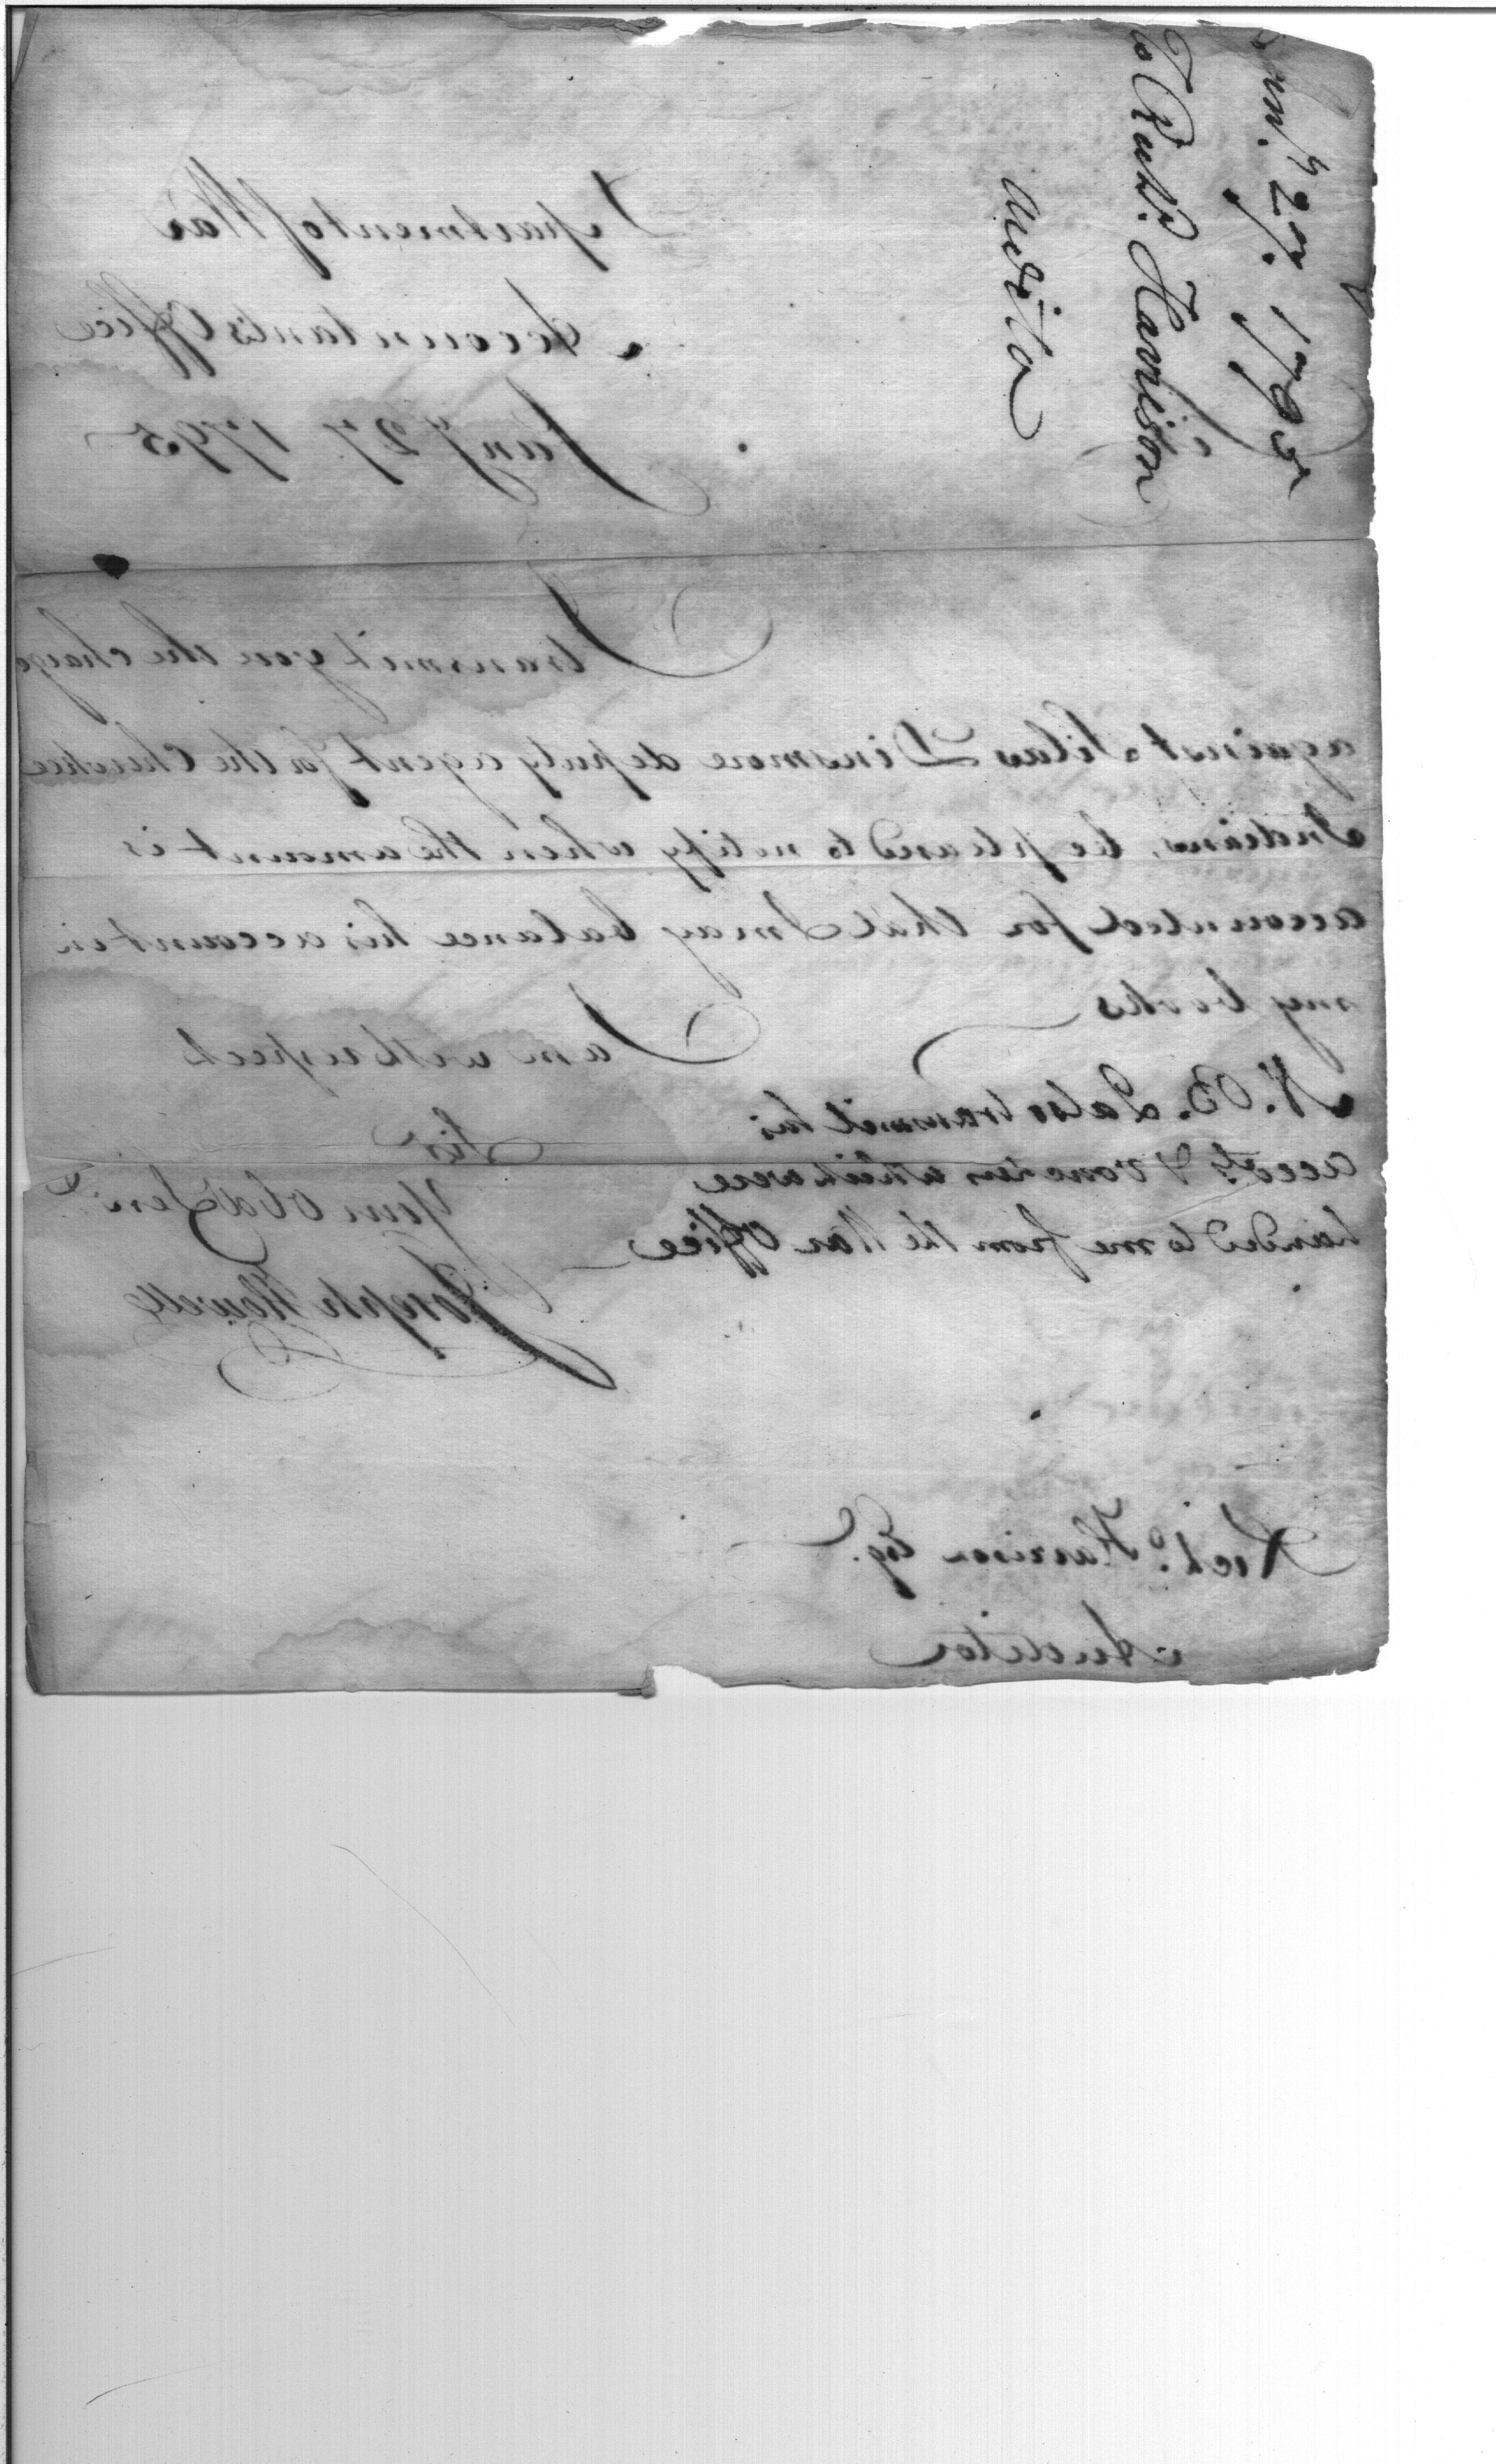 Jany. 27. 1795
to Richd. Harrison
Auditor
Department of War
Accountants Office
Jany 27. 1795
I transmit you the charge
against Silas Dinsmore deputy agent for the Cherokee
Indians, be pleased to notify when the amount is
accounted for that I may balance his account in
my books
I am with respect
Sir
Your obd Serv
Joseph Howell
N.B. I also transmit his
accots. & vouchers which were
handed to me from the War Office
Richd. Harrison Esq.
Auditor